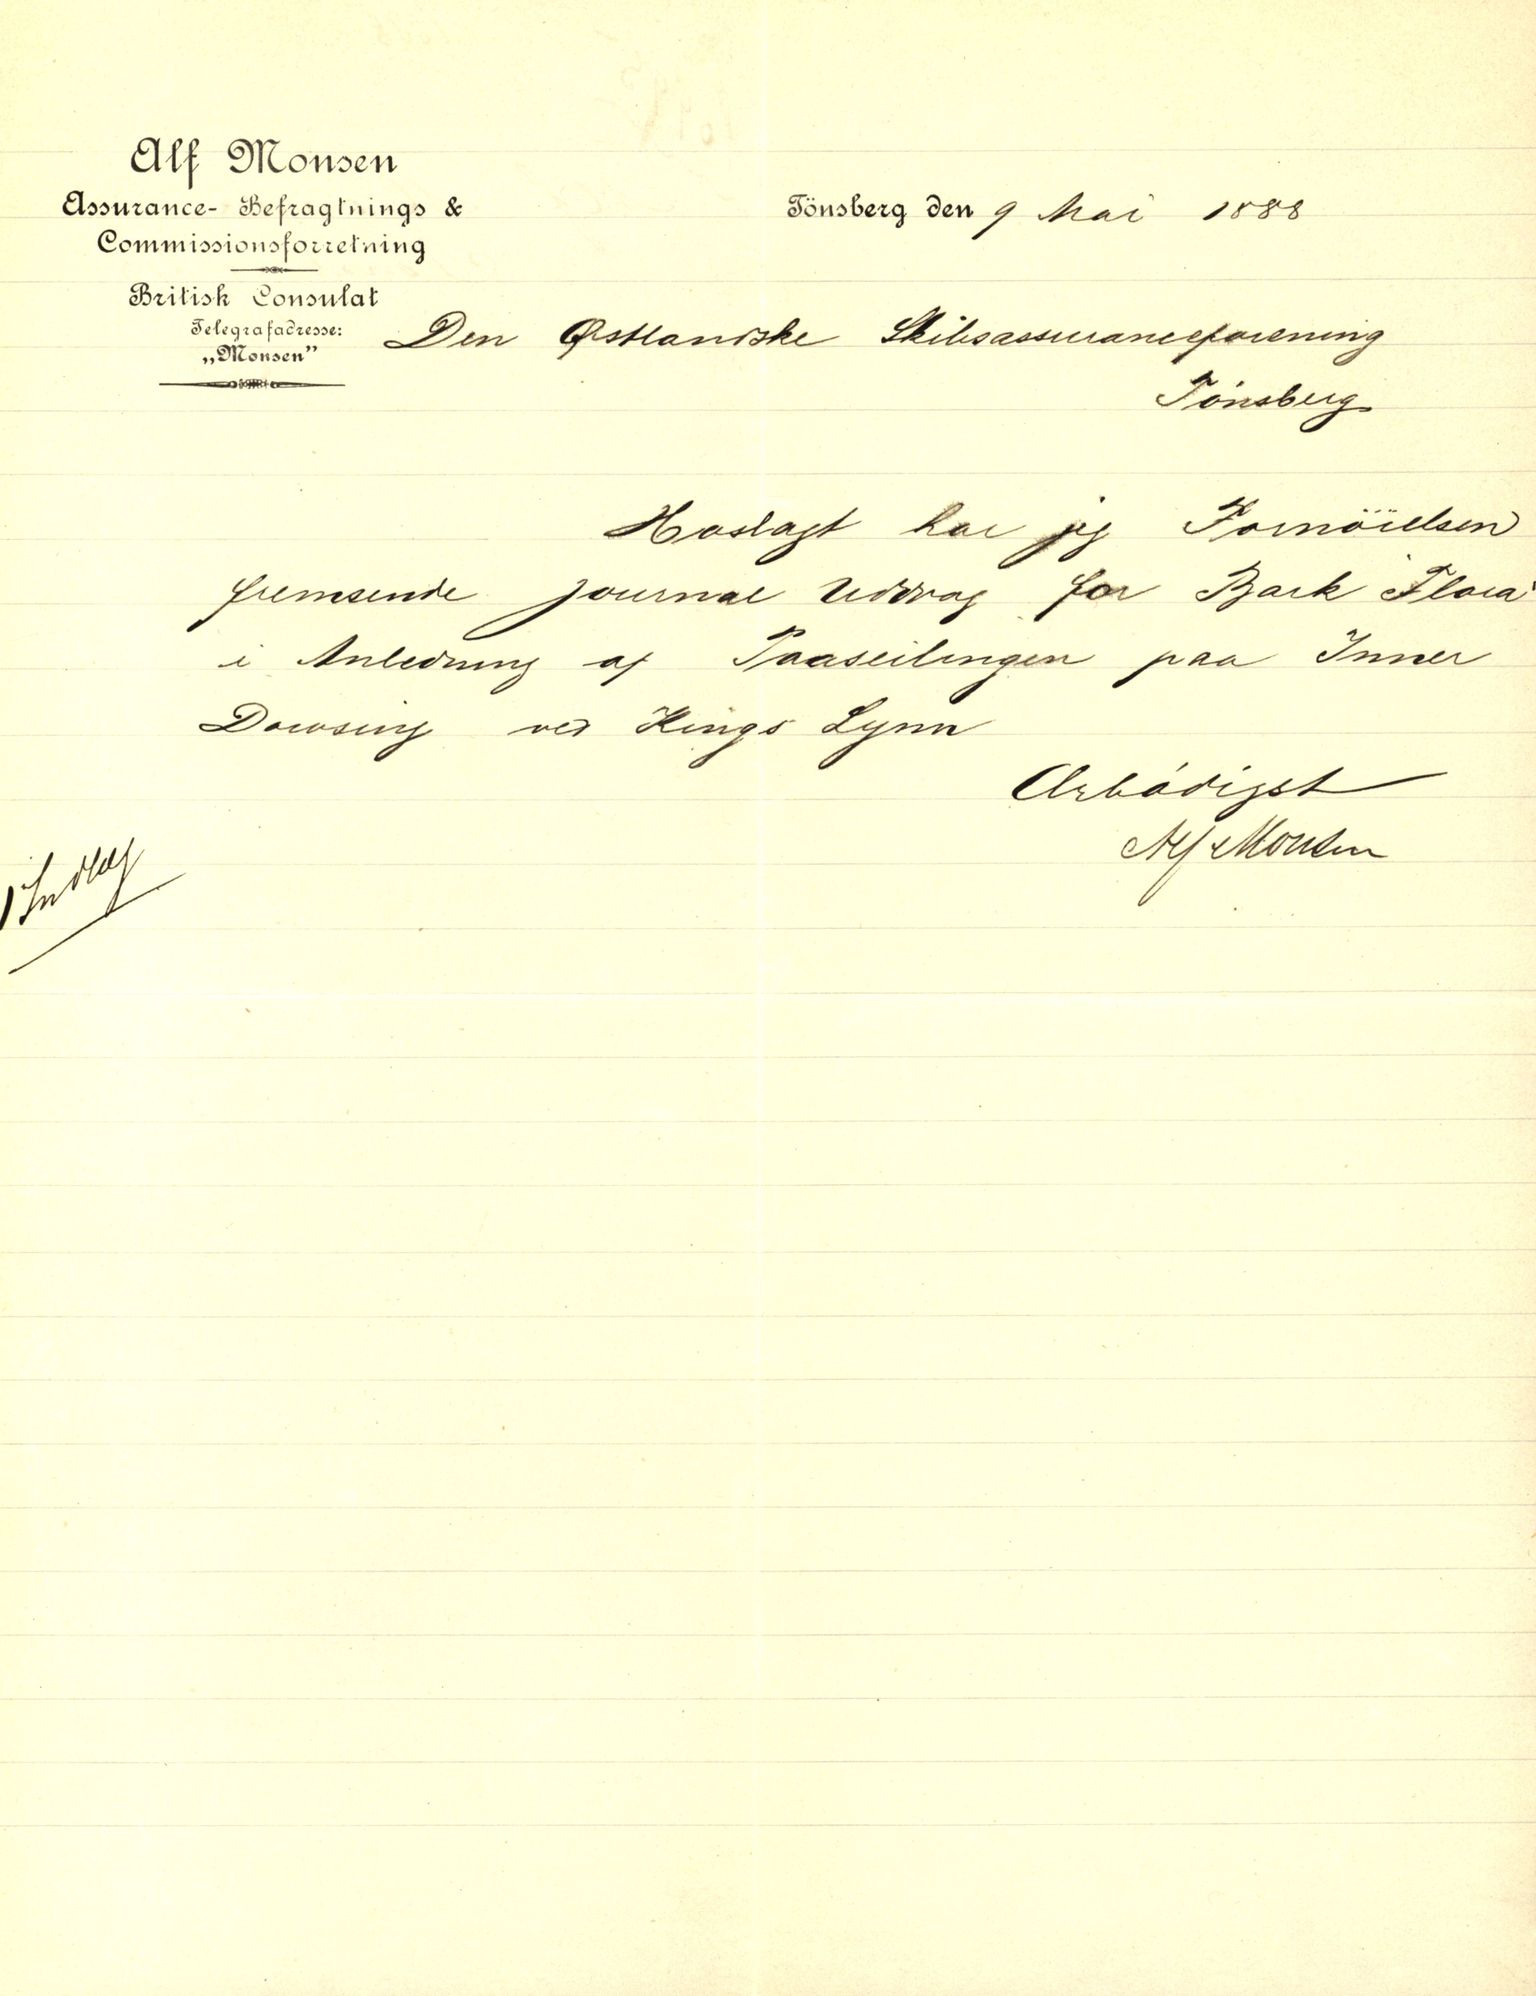 Alf Monsen
Assurance- Befragtnings &
Commissionsforretning
British Consulat
Telegrafadresse:
„Monsen”
Tönsberg den 9 Mai 1888
Den Østlandske Skibsassuranceforening
Tönsberg
Hoslagt har jeg Fornöielsen
fremsende Journal Uddrag for Bark "Flora"
i Anledning af Paaseilingen paa Inner
Dowsing ved Kings Lynn
Ærbödigst
Alf Monsen
1 Indlag